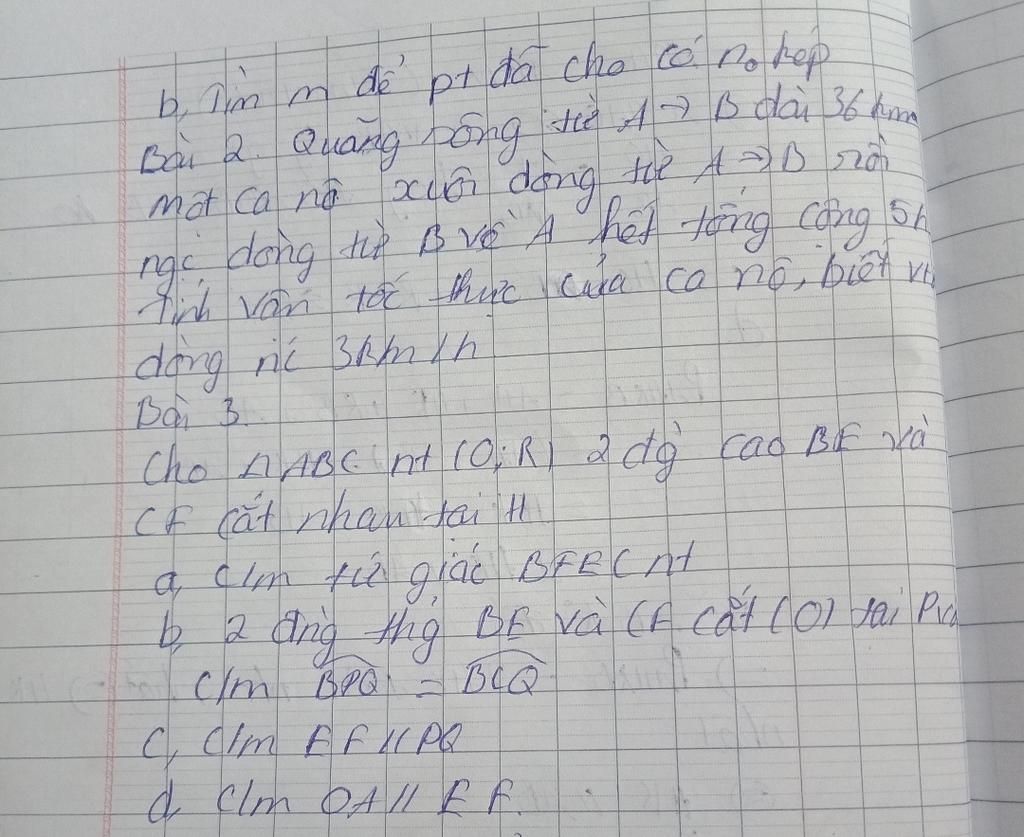 b, Tìm m để pt đã cho có no kép
Bài 2. Quãng sông từ A → B dài 36 km
một ca nô xuôi dòng từ A → B rồi
ngc dòng từ B về A hết tổng cộng 5h
Tính vận tốc thực của ca nô, biết vt
dòng nc 3km/h
Bài 3.
Cho △ABC nt (O; R) 2 đg cao BE và
CF cắt nhau tại H
a, C/m tứ giác BFEC nt
b, 2 đng thg BE và CF cắt (O) tại P và
C/m BPQ = BCQ
C, C/m EF // PQ
d, C/m OA // EF.